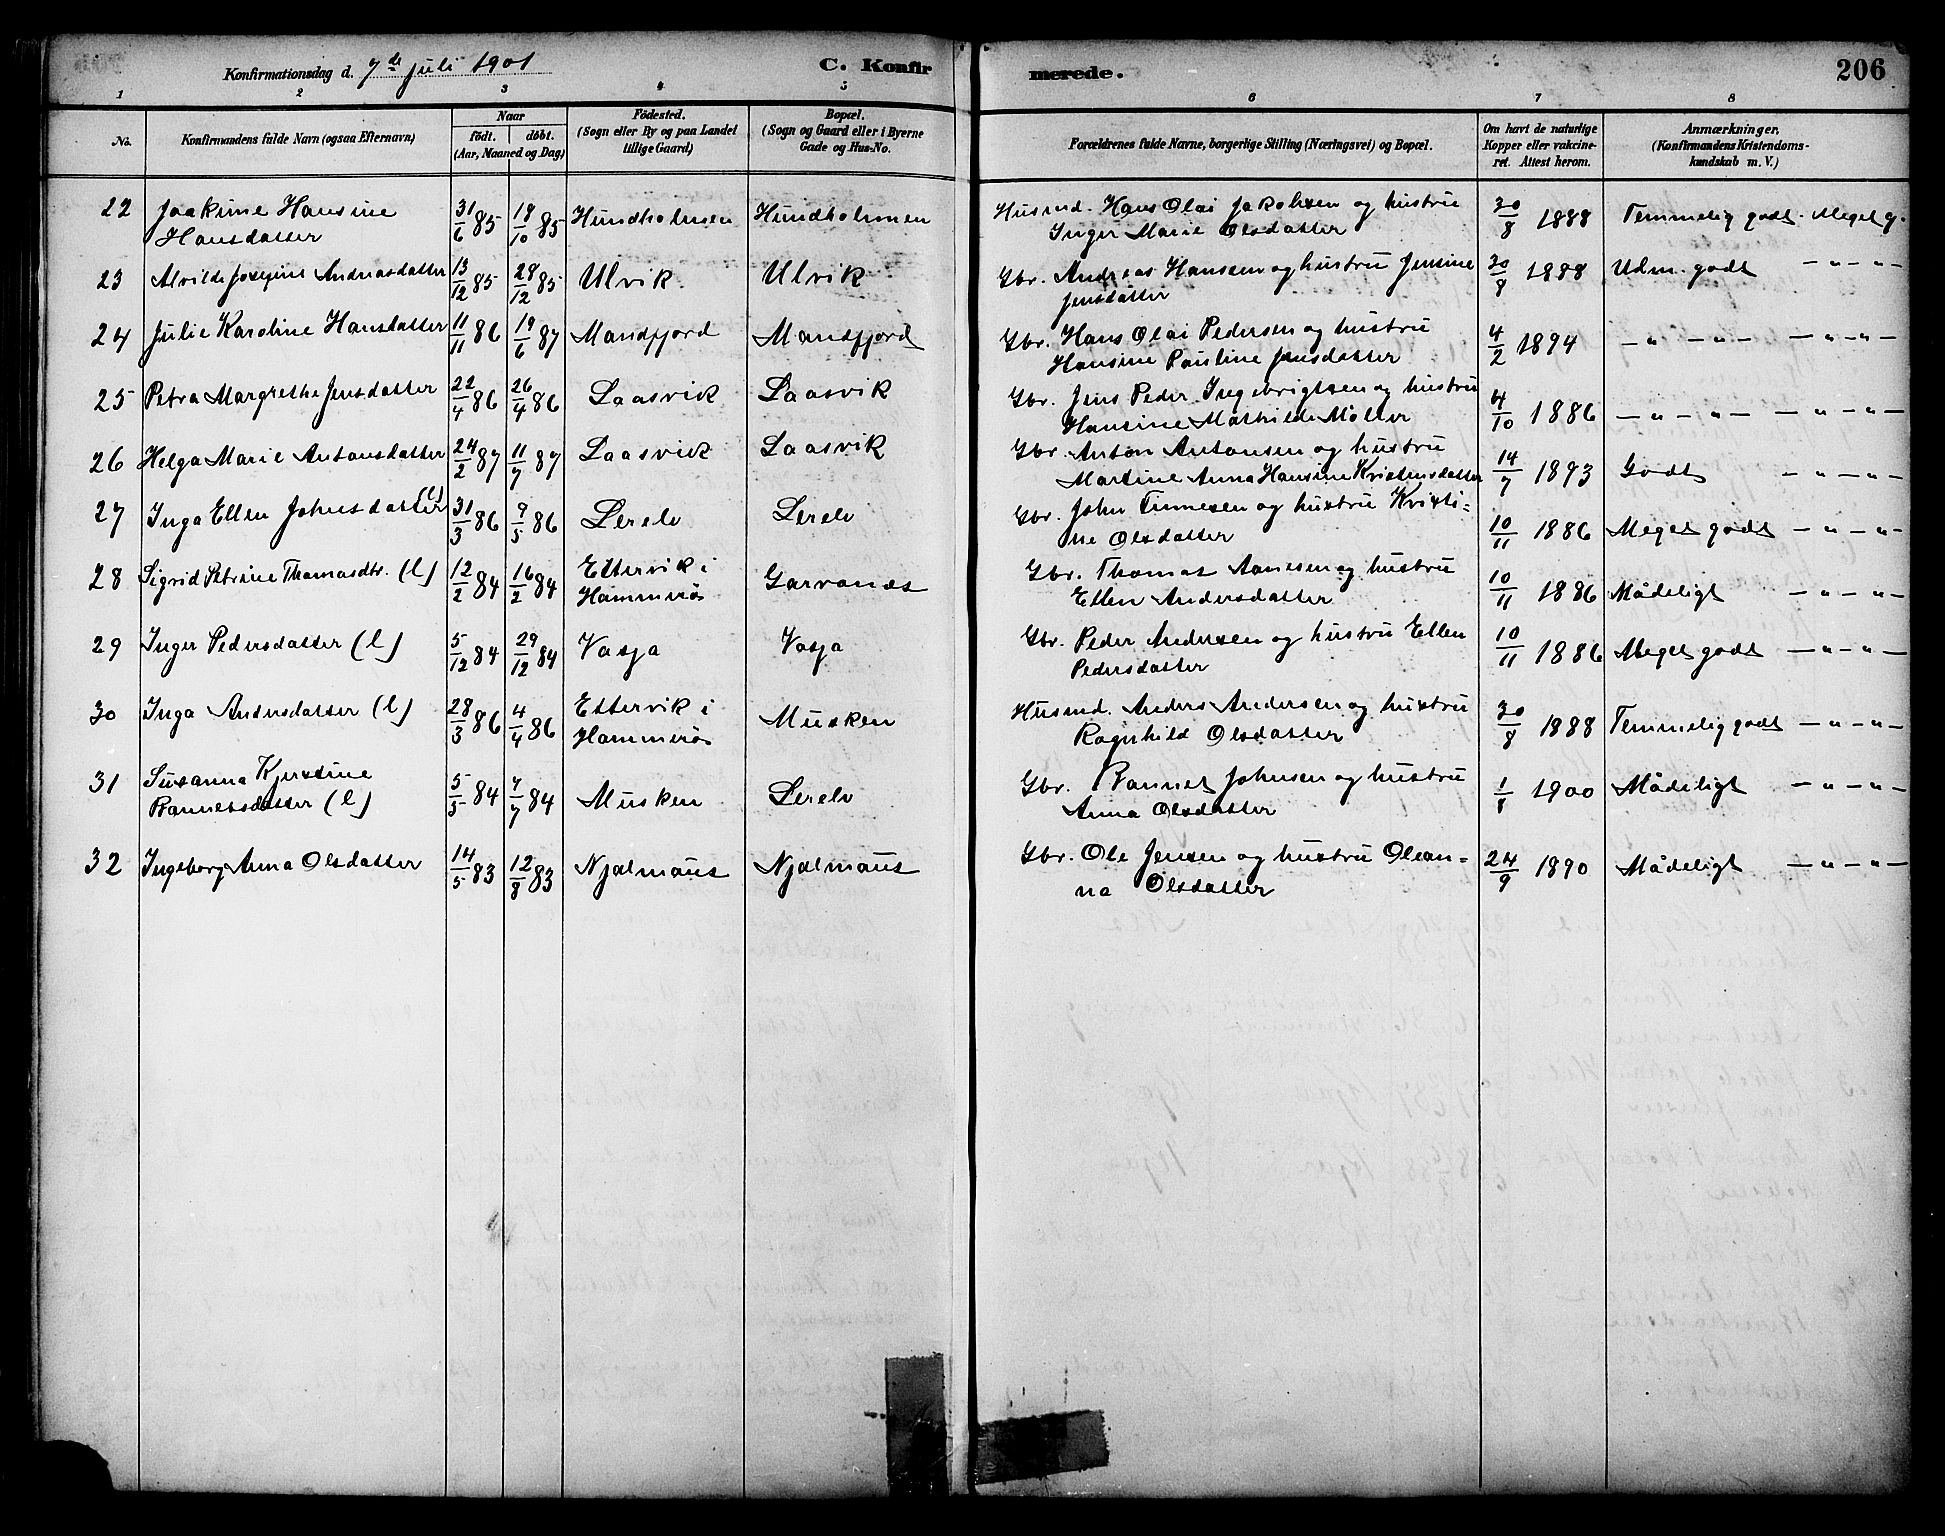 Konfirmationsdag d. 7de juli 1901
C. Konfirmerede.
206
1 2 3 4 5 6 7 8
No.
Konfirmandens fulde Navn (ogsaa Efternavn)
Naar
født. døbt.
(Aar, Maaned og Dag)
Fødested.
(Sogn eller By og paa Landet
tillige Gaard)
Bopæl.
(Sogn og Gaard eller i Byerne
Gade og Hus-No.
Forældrenes fulde Navne, borgerlige Stilling (Næringsvei) og Bopæl.
Om havt de naturlige
Kopper eller vakcine-
ret. Attest herom.
Anmærkninger.
(Konfirmandens Kristendoms-
kundskab m. V.)
22 Joakime Hansine 31/6 85 18/10 85 Hundholmen Hundholmen Husmd. Hans Olai Jakobsen og hustru 30/8 1888 Temmelig godt. Meget g.
Hansdatter Inger Marie Olsdatter
23 Alvilde Josefine Andreasdatter 13/12 85 28/12 85 Ulvik. Ulvik Gbr. Andreas Hansen og hustru Jensine 30/8 1888 Udm. godt — " — " —
Jensdatter
24 Julie Karoline Hansdatter 11/11 86 19/6 87 Mandfjord Mandfjord Gbr. Hans Olai Pedersen og hustru 4/2 1894 — " — " — — " — " —
Hansine Pauline Jensdatter
25 Petra Margrethe Jensdatter 22/4 86 26/4 86 Laasvik Laasvik Gbr. Jens Peder Ingebrigtsen og hustru 4/10 1886 — " — " — — " — " —
Hansine Mathilde Møller
26 Helga Marie Antonsdatter 24/2 87 11/7 87 Laasvik Laasvik Gbr. Anton Antonsen og hustru 14/7 1893 Godt — " — " —
Martine Anna Hansine Kristensdatter
27 Inga Ellen Johnsdatter (l) 31/3 86 9/5 86 Lerelv Lerelv Gbr. John Tinnesen og hustru Kristi-
ne Olsdatter 10/11 1886 Meget godt — " — " —
28 Sigrid Petrine Thomasdtr. (l) 12/2 84 16/2 84 Ettervik i Garvanes Gbr. Thomas Aanesen og hustru 10/11 1886 Mådeligt — " — " —
Hammerø Ellen Andersdatter
29 Inger Pedersdatter (l) 5/12 84 29/12 84 Vasja Vasja Gbr. Peder Andersen og hustru Ellen 10/11 1886 Meget godt — " — " —
Pedersdatter
30 Inga Andersdatter (l) 28/3 86 4/4 86 Ettervik i Musken Husmd. Anders Andersen og hustru 30/8 1888 Temmelig godt — " — " —
Hammerø Ragnhild Olsdatter
31 Susanna Kjerstine 5/5 84 7/7 84 Musken Lerelv Gbr. Rannet Johnsen og hustru 1/8 1900 Mådeligt — " — " —
Rannetsdatter (l) Anna Olsdatter
32 Ingeborg Anna Olsdatter 14/5 83 12/8 83 Njalmaus Njalmaus Gbr. Ole Jensen og hustru Olean- 24/9 1890 Mådeligt — " — " —
na Olsdatter